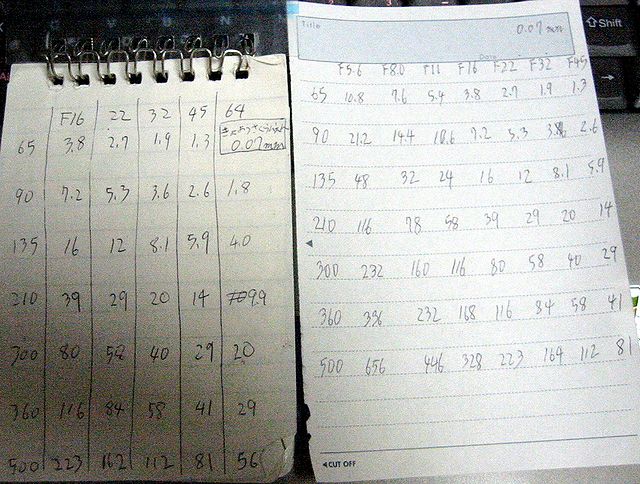 F16 22 32 45 64
きょようさくらんえん
0.07mm
65 3.8 2.7 1.9 1.3
90 7.2 5.3 3.6 2.6 1.8
135 16 12 8.1 5.9 4.0
210 39 29 20 14 9.9
300 80 58 40 29 20
360 116 84 58 41 29
500 223 162 112 81 56
Title
0.07mm
Date
F5.6 F8.0 F11 F16 F22 F32 F45
65 10.8 7.6 5.4 3.8 2.7 1.9 1.3
90 21.2 14.4 10.6 7.2 5.3 3.6 2.6
135 48 32 24 16 12 8.1 5.9
210 116 78 58 39 29 20 14
300 232 160 116 80 58 40 29
360 336 232 168 116 84 58 41
500 656 446 328 223 164 112 81
◀CUT OFF
⇧Shift
→